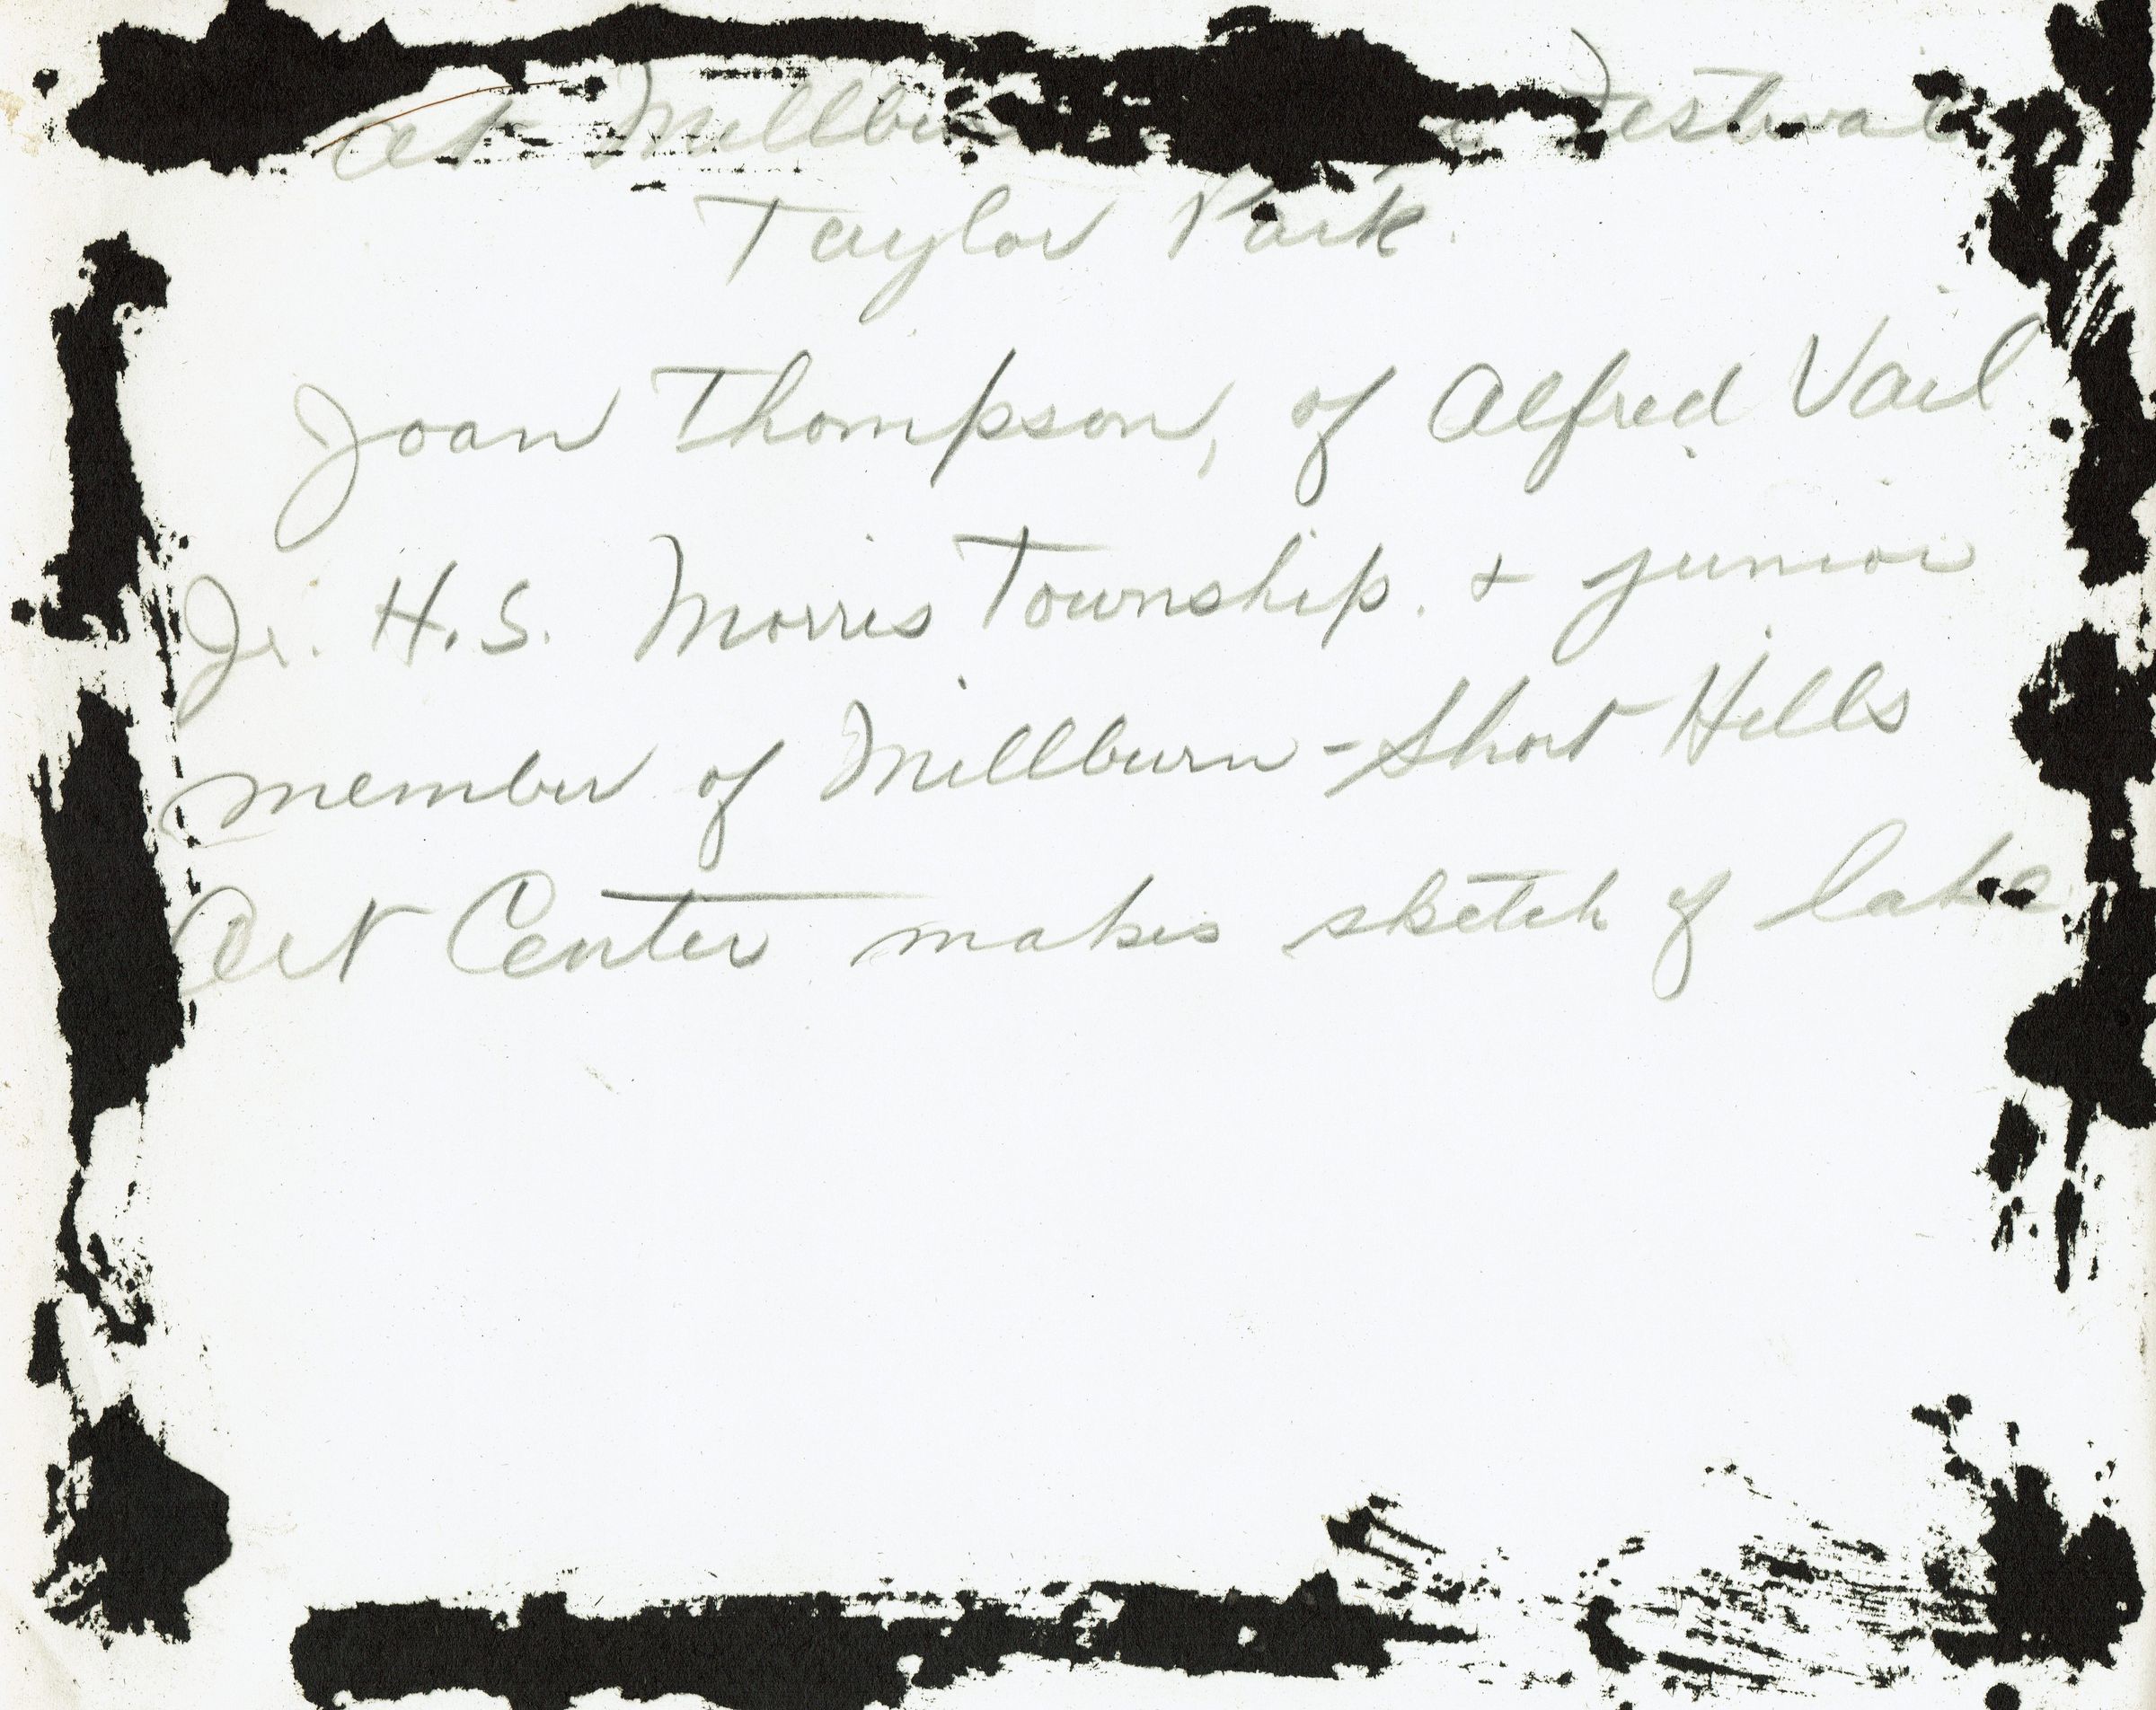 at Millburn Festival
Taylor Park.
Joan Thompson, of Alfred Vail
Jr. H.S. Morris Township. + junior
member of Millburn-Short Hills
Art Center makes sketch of lake